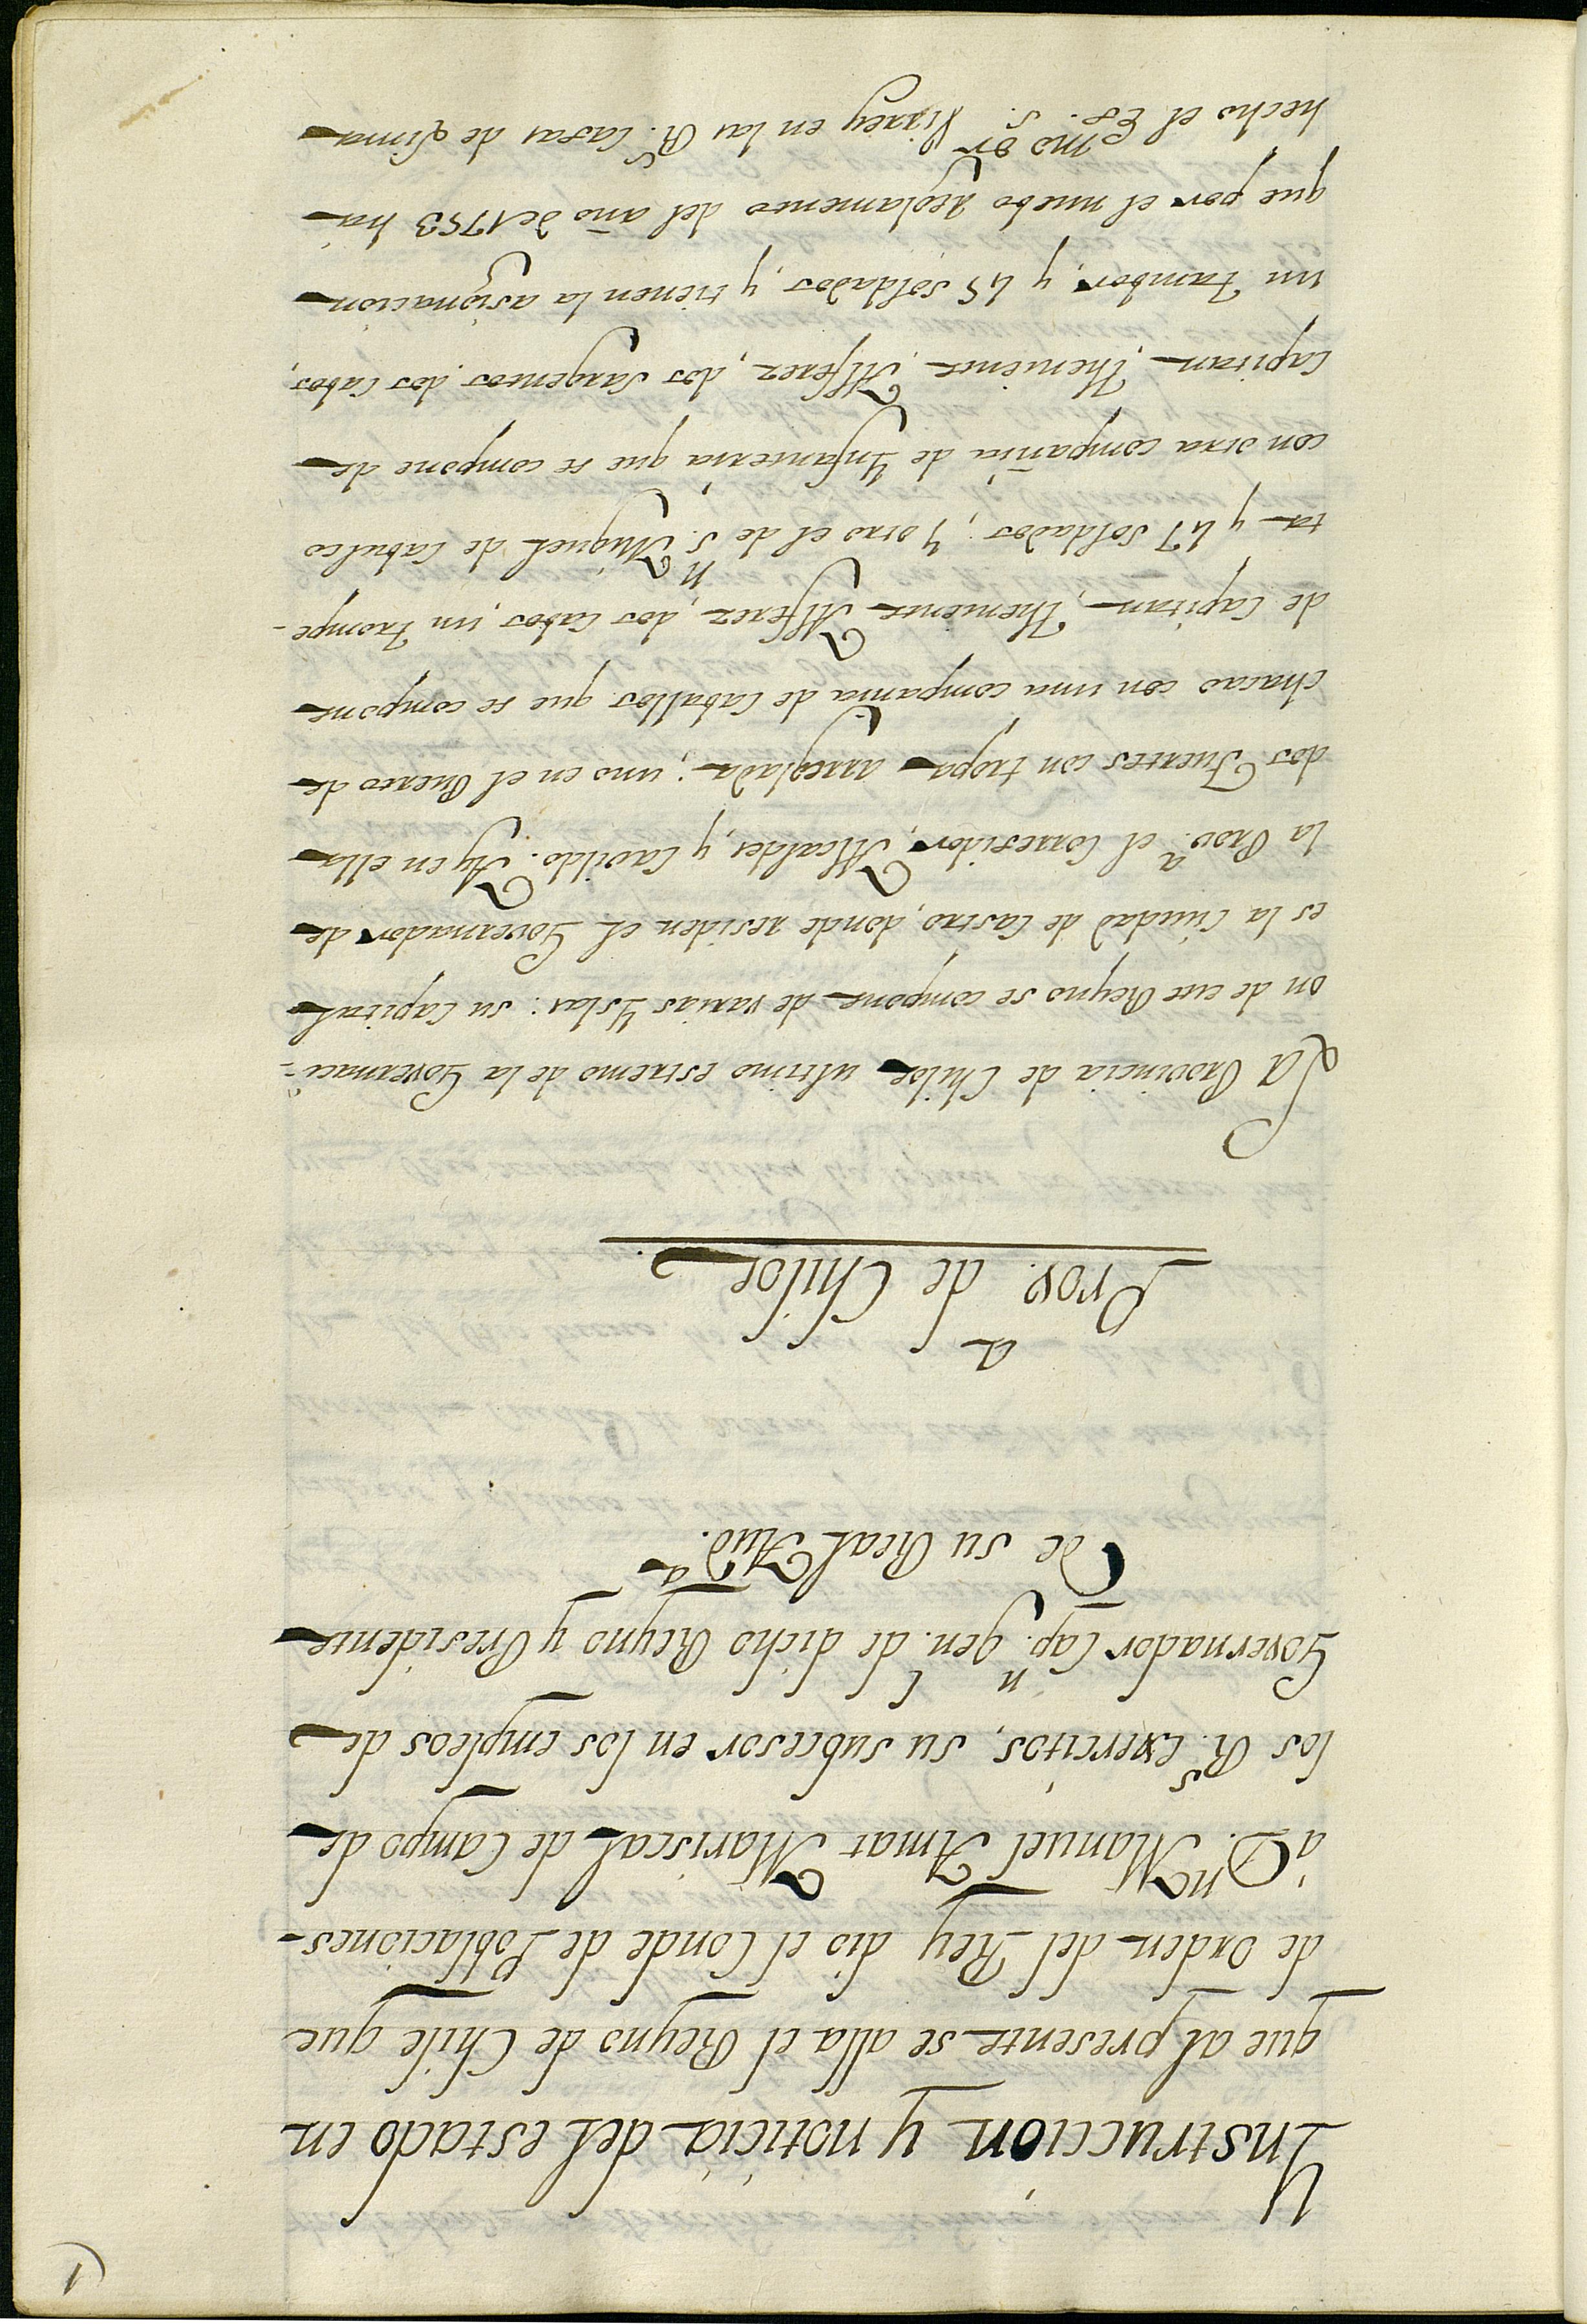 1
Ynstruccion y noticia del estado en
que al presente se alla el Reyno de Chile que
de orden del Rey dio el Conde de Poblaciones
a Dn. Manuel Amat Mariscal de Campo de
los Rs. Exercitos, su subcesor en los empleos de
Governador Capn. genl. de dicho Reyno y Presidente
de su Real Auda.
Prova. de Chiloe
La Provincia de Chiloe ultimo estremo de la Governaci-
on de este Reyno se compone de varias Yslas: su Capital
es la Ciudad de Castro, donde residen el Governador de
la Prova. el Corregidor, Alcaldes, y Cavildo. Ay en ella
dos Fuertes con tropa arreglada; uno en el Puerto de
chacao con una compania de Caballos que se compone
de Capitan, Theniente Alferez, dos Cabos, un Trompe-
ta y 47 soldados; y otro el de Sn. Miguel de Cabulco
con otra compañia de Ynfanteria que se compone de
Capitan, Theniente, Alferez, dos Sargentos, dos Cabos,
un Tambor, y 45 soldados, y tienen la asignacion
que por el nuebo reglamento del año de 1753 há
hecho el Exmo. Sor. Virrey en las Rs. Casas de Lima